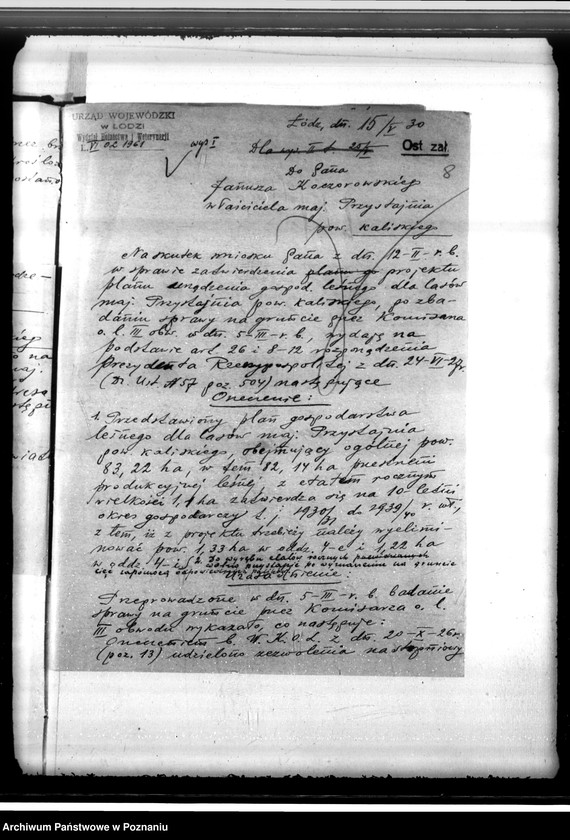 URZĄD WOJEWÓDZKI
W ŁODZI
Wydział Rolnictwa i Weterynarji
L. VI 02 1961
wyp I
Łódź, dn. 15/V 30
Ost zał.
8
Do Pana
Janusza Koczorowskiego
właściciela maj. Przystajnia
pow. kaliskiego
Na skutek wniosku Pana z dn. 12-II-r. b.
w sprawie zatwierdzenia projektu
planu urządzenia gospod. leśnego dla lasów
maj. Przystajnia pow. kaliskiego, po zba-
daniu sprawy na gruncie przez Komisarza
o. l. III obw. w dn. 5-III-r. b., wydaję na
podstawie art. 26 i 8-12 rozporządzenia
Prezydenta Rzeczypospolitej z dn. 24-VI-27r
(Dz. Ust. № 57 poz. 504) następujące
Orzeczenie:
1. Przedstawiony plan gospodarstwa
leśnego dla lasów maj. Przystajnia
pow. kaliskiego, obejmujący ogólnej pow.
83,22 ha, w tem 82,14 ha przestrzeni
produkcyjnej leśnej, z etatem rocznym
wielkości 1,1 ha zatwierdza się na 10-letni
okres gospodarczy t. j. 1930/31 do 1939/40 r. wł.,
z tem, iż z projektu trzebieży należy wyelimi-
nować pow. 1,33 ha w oddz. 4-c i 1,22 ha
w oddz. 4-i
2. Do wyrębu etatów rocznych
wolno przystąpić po wyznaczeniu na gruncie
Uzasadnienie:
Przeprowadzone w dn. 5-III-r. b. badanie
sprawy na gruncie przez Komisarza o. l.
III obwodu wykazało, co następuje:
Orzeczeniem b. W. K. O. L. z dn. 20-X-26r.
(poz. 13) udzielono zezwolenia na stopniowy
Archiwum Państwowe w Poznaniu